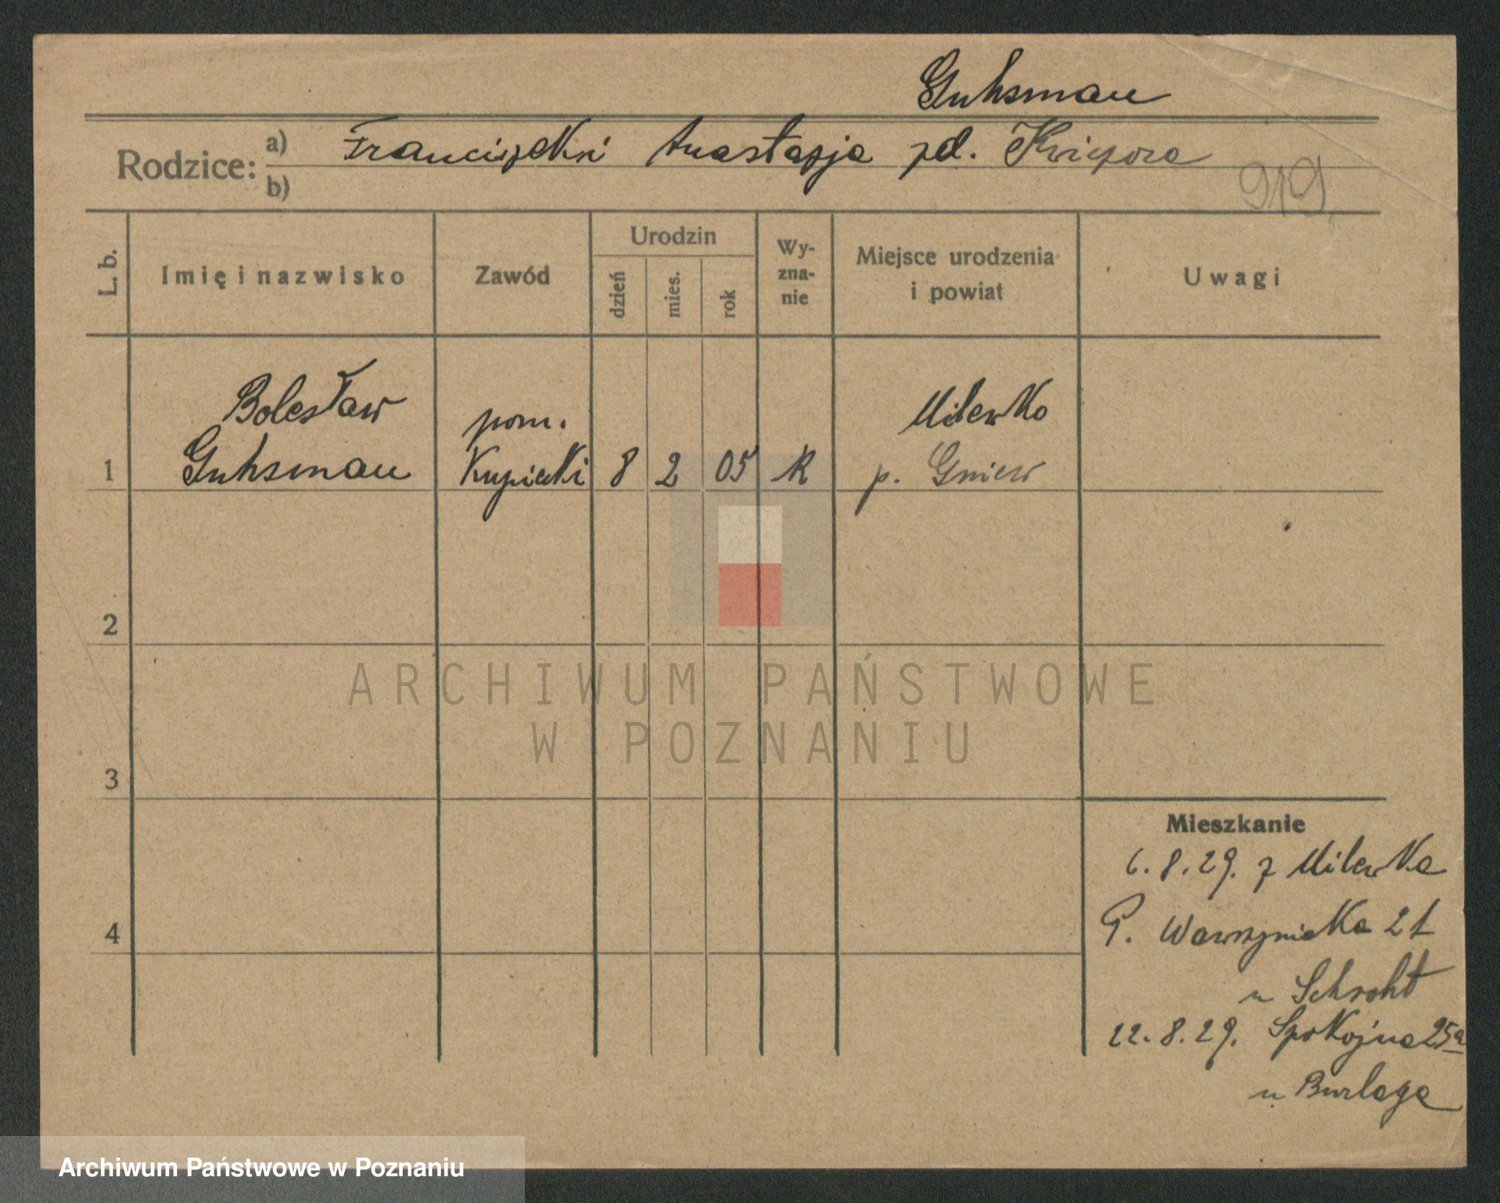 Guhsman
Rodzice: a) Franciszek i Anastazja zd.
b)
919
L. b. Imię i nazwisko Zawód Urodzin dzień mies. rok Wyznanie Miejsce urodzenia i powiat Uwagi
Bolesław pom. Milewko
1 Guhsman Kupiecki 8 2 05 R p. Gniew
2
ARCHIWUM PAŃSTWOWE
W POZNANIU
3
Mieszkanie
6.8.29. z Milewka
4 P. 21
u Schroht
22.8.29. Spokojna 25a
u Burlaga
Archiwum Państwowe w Poznaniu